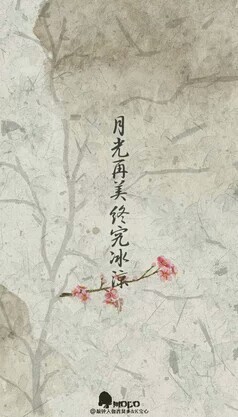 月光再美终究冰凉
MOFO